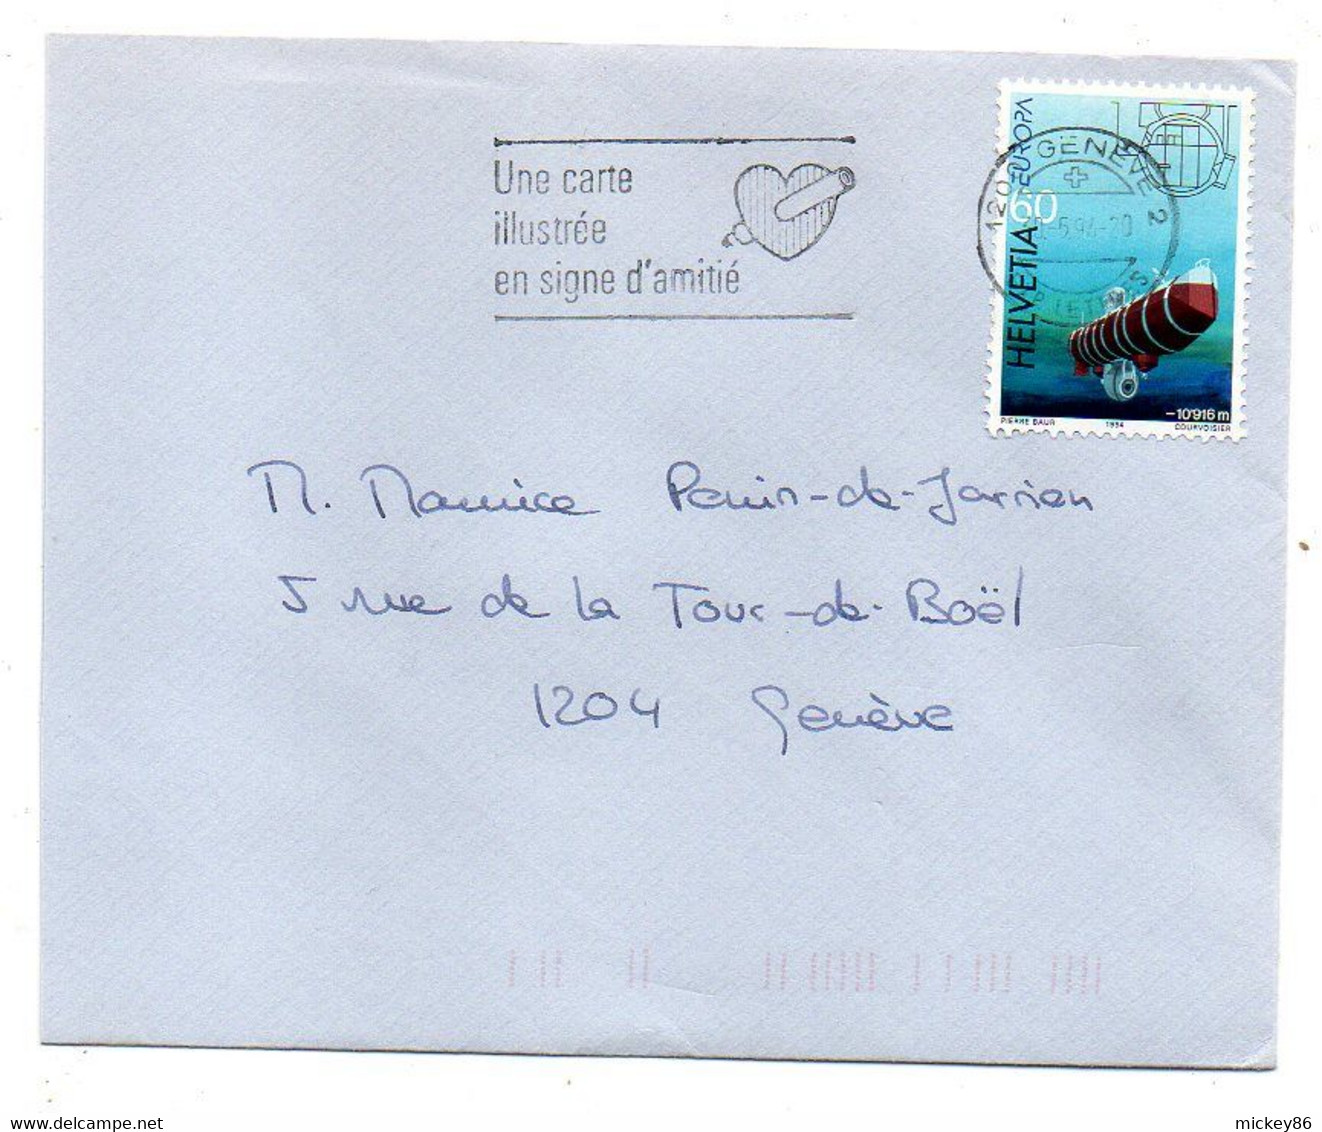 Une carte
illustrée
en signe d'amitié
EUROPA
60
HELVETIA
GENÈVE 2
-10'916 m
PIERRE BAUR 1994 COURVOISIER
M. Maurice de-Jarrien
5 rue de la Tour-de-Boël
1204 Genève
www.delcampe.net
mickey86